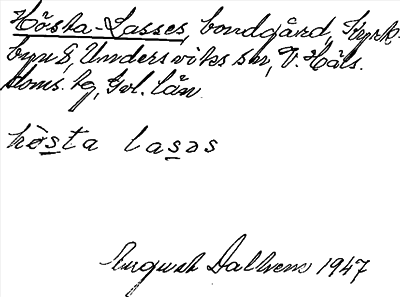 Hösta-Lasses, bondgård, Kyrk-
byn 8, Undersviks sn, V. Häls.
doms. hg, Gvl. län.
hòs̲ta las̲əs
August Dalhem 1947